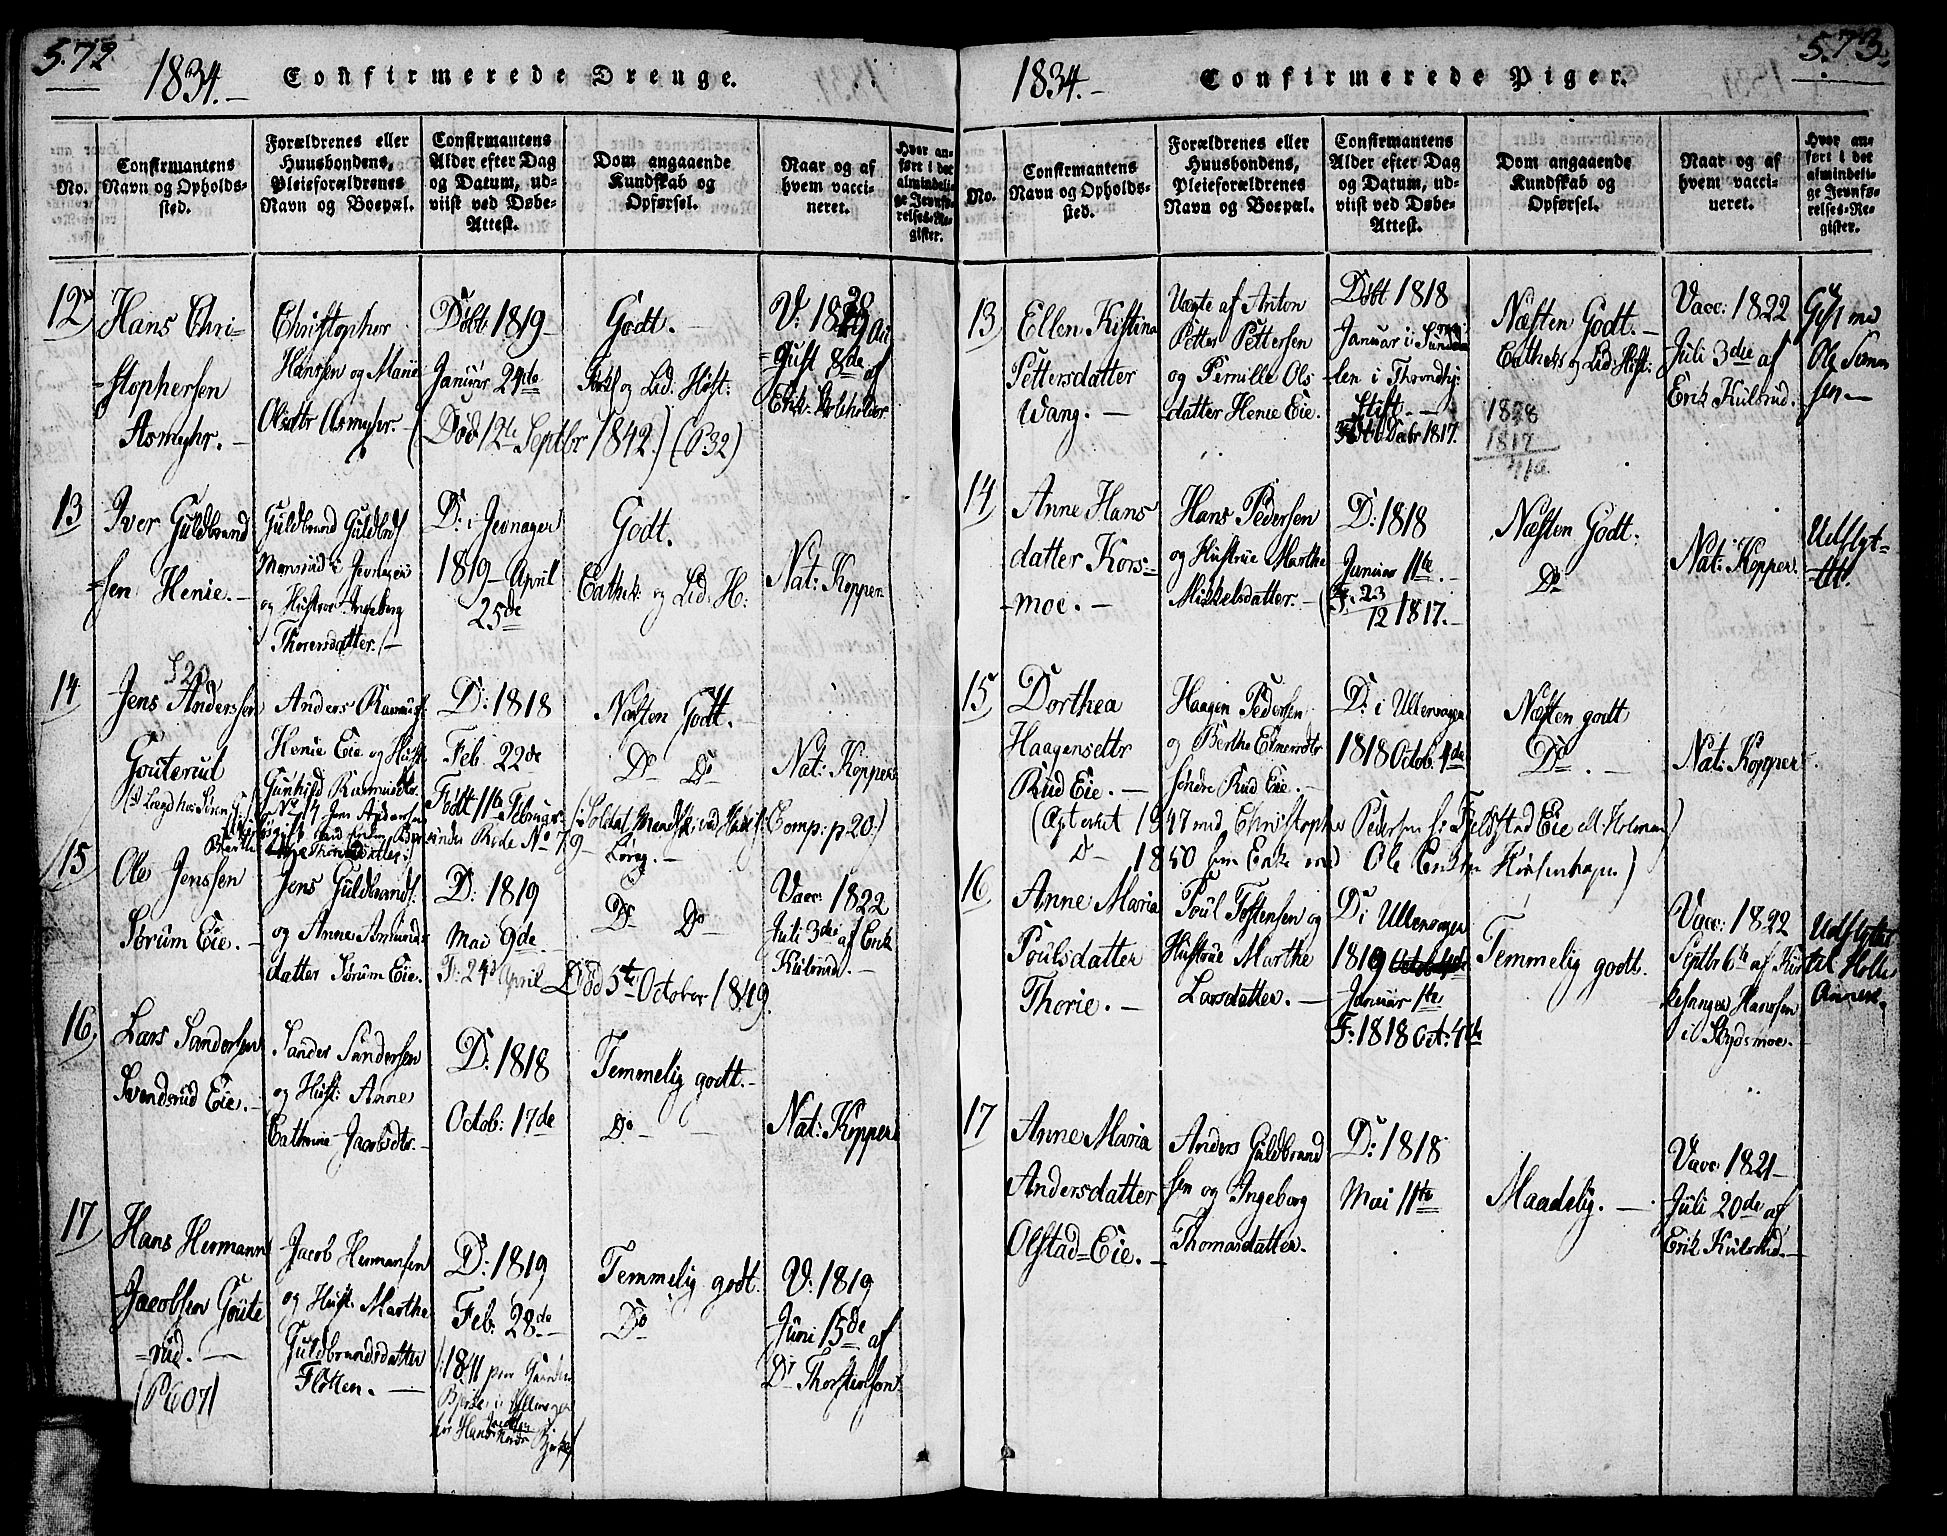 572
1834.—
Confirmerede Drenge.
No.
Confirmantens
Navn og Opholds-
sted.
Forældrenes eller
Huusbondens,
Pleieforældrenes
Navn og Boepæl.
Confirmantens
Alder efter Dag
og Datum, ud-
viist ved Døbe-
Attest.
Dom angaaende
Kundskab og
Opførsel.
Naar og af
hvem vacci-
neret.
Hvor an-
ført i det
almindeli-
ge Jevnfø-
relses-Re-
gister.
12
Hans Chri-
stophersen
Asmyhr.—
Christopher
Hansen og Marie
Olsdtr Asmyhr.—
Døbt 1819—
Januar 24de
(Død 12te Septbr 1842.) (P32)
Godt.—
og Lid. Høst:
V: 18
gust 8de af
Erik
13
Iver Guldbrand
sen Henie.—
Guldbrand Guldbds
i Jevnager
og Hustroe Ingeborg
Thoresdatter.
D: i Jevnager
1819—April
25de
Godt.
Cathek: og Lid. H:
Nat: Kopper
14
Jens Andersen
Gouterud
Anders Rasmus
Henie Eie og Hust:
Gunhild Rasmusdtr
D: 1818
Feb. 22de
Født 11te Februar
Næsten Godt.—
Do Do
Nat: Kopper
Comp: p 20:)
15
Ole Jenssen
Sørum Eie.—
Jens Guldbrands:
og Anne Amunds-
datter Sørum Eie.
D: 1819
Mai 9de
F: 24d April
Død 5te October 1849.
Do Do
Vacc: 1822
Juli 3die af Erik
Kulsrud.—
16
Lars Sandersen
Svendsrud Eie.—
Sander Sandersen
og Hust: Anne
Cathrine Jacobsdtr.—
D: 1818
Octob: 17de
Temmelig godt.—
Do—
Nat: Kopper
17
Hans Hermann
Jacobsen Goute
rud.—
(P607)
Jacob Hermansen
og Hust: Marthe
Guldbrandsdatter
Fløtten.—
D: 1819
Feb: 28de—
1841 paa
Temmelig godt.
Do
V: 1819
Juni 15de af
Dr Thorstensen
573.
1834.—
Confirmerede Piger.
No.
Confirmantens
Navn og Opholds-
sted.
Forældrenes eller
Huusbondens,
Pleieforældrenes
Navn og Boepæl.
Confirmantens
Alder efter Dag
og Datum, ud-
viist ved Døbe-
Attest.
Dom angaaende
Kundskab og
Opførsel.
Naar og af
hvem vacci-
neret.
Hvor an-
ført i det
almindeli-
ge Jevnfø-
relses-Re-
gister.
13
Ellen Kistina
Pettersdatter
Wang.—
Uægte af Anton
Petter Pettersen
og Pernille Ols
datter Henie Eie.
Døbt 1818
Januar i
len i Throndhj:
Stift.—
Decbr 1817.
Næsten Godt.—
Cathek: og Lid. Høst:
1817
Vacc: 1822
Juli 3die af
Erik Kulsrud.
Gift med
Ole Simen
sen—
14
Anne Hans
datter Kors-
moe.—
Hans Pedersen
og Hustrue Marthe
Mikkelsdatter.—
D: 1818
Januar 11te.—
(F. 23/12 1817.—
Næsten Godt.
Do
Nat: Kopper.
Udflyt-
tet.
15
Dorthea
Haagensdtr
Rud Eie.—
Haagen Pedersen
og Berthe Einersdtr
søndre Rud Eie.—
D: i Ullensager
1818 Octob. 4de
Næsten godt
Do.—
Nat: Kopper.
1847 med Christopher Pedersen
Do 1850 som Enke med Ole
16
Anne Maria
Poulsdatter
Thorie.—
Poul Tostensen og
Hustrue Marthe
Larsdatter.—
D: i Ullensager
1819
Januar 1te
F: 1818 Oct: 4de
Temmelig godt.
Vacc: 1822
Septbr 6te af Kir
kesanger Hanssen
i Skydsmoe.
Udflyttet
til Holter
Annex.
17
Anne Maria
Andersdatter
Olstad=Eie.—
Anders Guldbrand
sen og Ingeborg
Thomasdatter.
D: 1818
Mai 11te
Maadelig.—
Vacc: 1821—
Juli 20de af
Erik Kulsrud.—